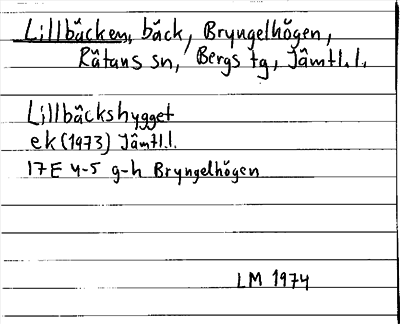 Lillbäcken, bäck, Bryngelhögen,
Rätans sn, Bergs tg, Jämtl.l.
Lillbäckshygget
ek (1973) Jämtl.l.
17E 4-5 g-h Bryngelhögen
LM 1974